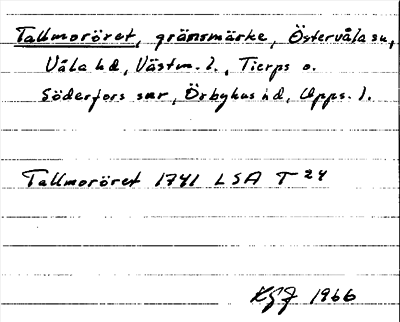 Tallmoröret, gränsmärke, Östervåla sn,
Våla hd, Västm. l., Tierps o.
Söderfors snr, Örbyhus hd, Upps. l.
Tallmoröret 1741 LSA T 24
1966